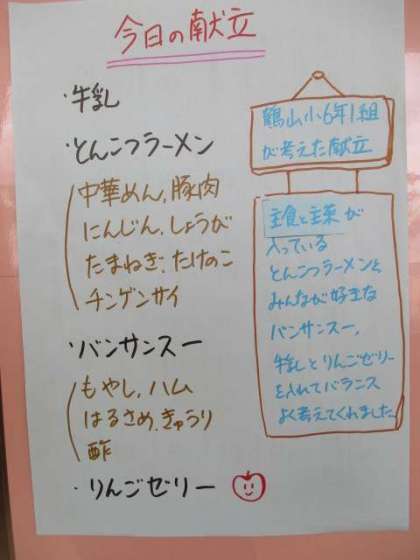 今日の献立
・牛乳
・とんこつラーメン
中華めん、豚肉
にんじん、しょうが
たまねぎ、たけのこ
チンゲンサイ
・バンサンスー
もやし、ハム
はるさめ、きゅうり
酢
・りんごゼリー
鶴山小6年1組
が考えた献立
主食と主菜が
入っている
とんこつラーメンと
みんなが好きな
バンサンスー、
牛乳とりんごゼリー
を入れてバランス
よく考えてくれました。